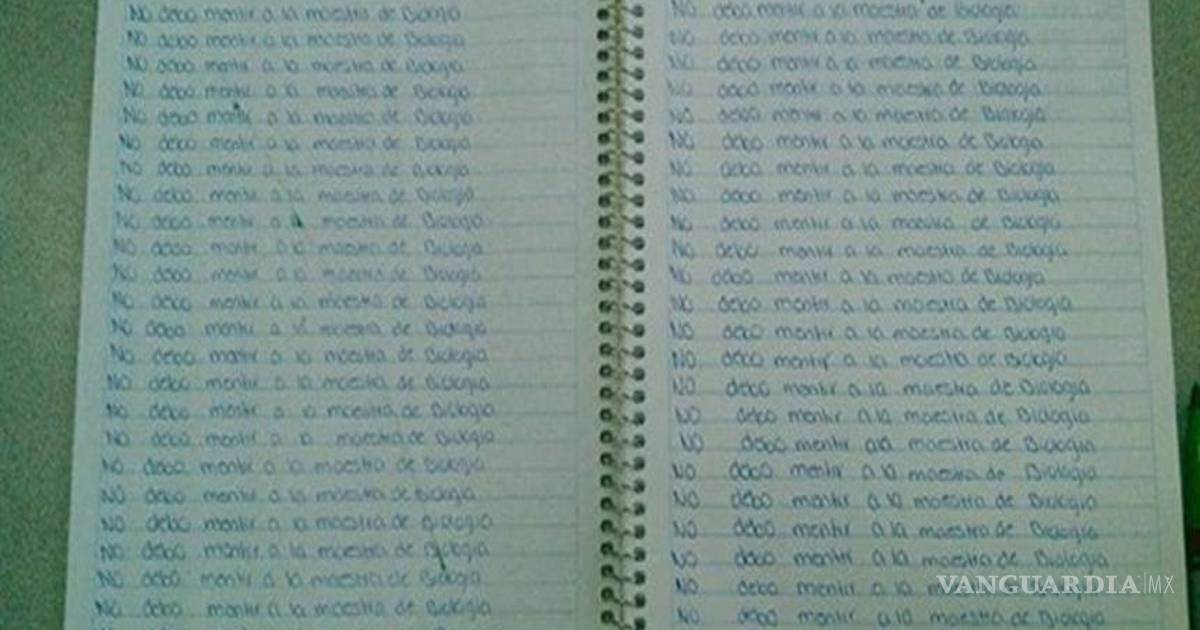 No debo mentir a la maestra de Biologia
No debo mentir a la maestra de Biologia
No debo mentir a la maestra de Biologia
No debo mentir a la maestra de Biologia
No debo mentir a la maestra de Biologia
No debo mentir a la maestra de Biologia
No debo mentir a la maestra de Biologia
No debo mentir a la maestra de Biologia
No debo mentir a la maestra de Biologia
No debo mentir a la maestra de Biologia
No debo mentir a la maestra de Biologia
No debo mentir a la maestra de Biologia
No debo mentir a la maestra de Biologia
No debo mentir a la maestra de Biologia
No debo mentir a la maestra de Biologia
No debo mentir a la maestra de Biologia
No debo mentir a la maestra de Biologia
No debo mentir a la maestra de Biologia
No debo mentir a la maestra de Biologia
No debo mentir a la maestra de Biologia
No debo mentir a la maestra de Biologia
No debo mentir a la maestra de Biologia
No debo mentir a la maestra de Biologia
No debo mentir a la maestra de Biologia
No debo mentir a la maestra de Biologia
No debo mentir a la maestra de Biologia
No debo mentir a la maestra de Biologia
No debo mentir a la maestra de Biologia
No debo mentir a la maestra de Biologia
No debo mentir a la maestra de Biologia
No debo mentir a la maestra de Biologia
No debo mentir a la maestra de Biologia
No debo mentir a la maestra de Biologia
No debo mentir a la maestra de Biologia
No debo mentir a la maestra de Biologia
No debo mentir a la maestra de Biologia
No debo mentir a la maestra de Biologia
No debo mentir a la maestra de Biologia
No debo mentir a la maestra de Biologia
No debo mentir a la maestra de Biologia
No debo mentir a la maestra de Biologia
No debo mentir a la maestra de Biologia
No debo mentir a la maestra de Biologia
No debo mentir a la maestra de Biologia
No debo mentir a la
No debo mentir a la maestra de Biologia
VANGUARDIA|MX